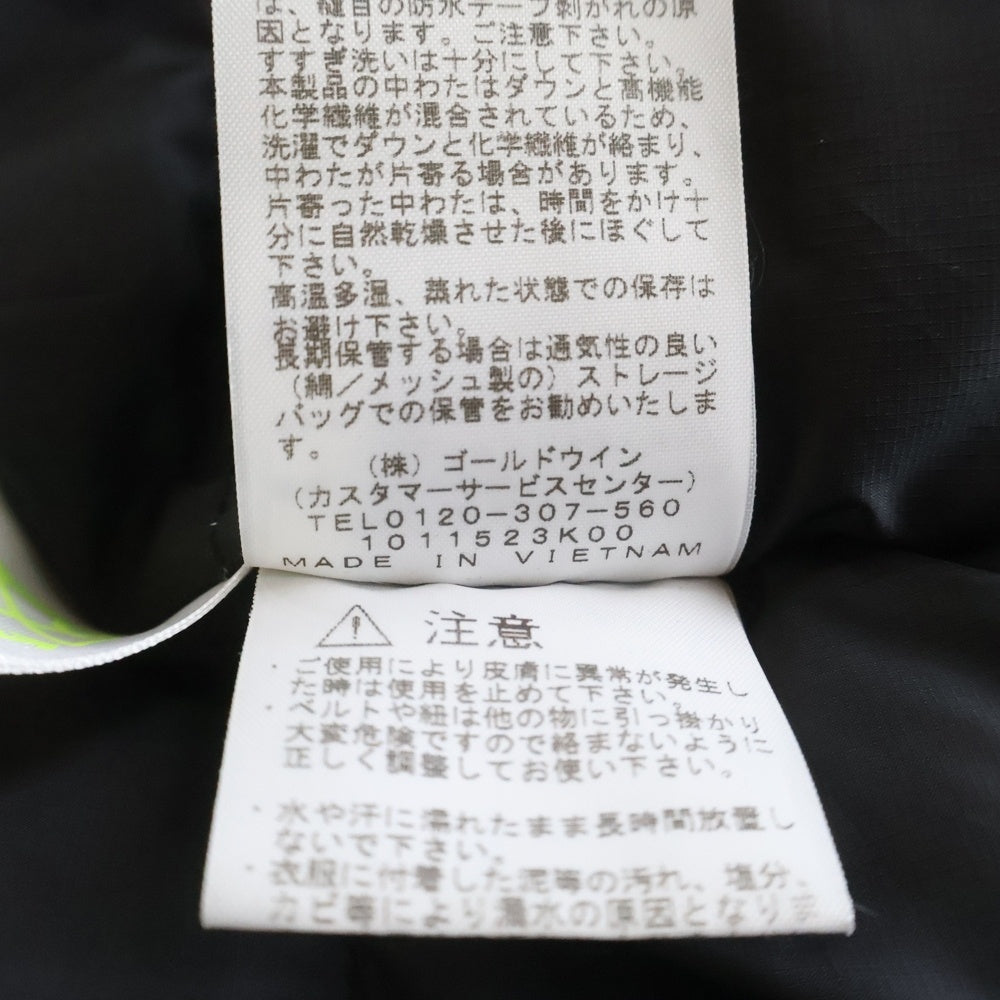 は、縫目の防水テープ剥がれの原
因となります。ご注意下さい。
すすぎ洗いは十分にして下さい。
本製品の中わたはダウンと高機能
化学繊維が混合されているため、
洗濯でダウンと化学繊維が絡まり、
中わたが片寄る場合があります。
片寄った中わたは、時間をかけ十
分に自然乾燥させた後にほぐして
下さい。
高温多湿、蒸れた状態での保存は
お避け下さい。
長期保管する場合は通気性の良い
（綿／メッシュ製の）ストレージ
バッグでの保管をお勧めいたしま
す。
（株）ゴールドウイン
（カスタマーサービスセンター）
TEL0120-307-560
1011523K00
MADE IN VIETNAM
注意
・ご使用により皮膚に異常が発生し
た時は使用を止めて下さい。
・ベルトや紐は他の物に引っ掛かり
大変危険ですので絡まないように
正しく調整してお使い下さい。
・水や汗に濡れたまま長時間放置し
ないで下さい。
・衣服に付着した泥等の汚れ、塩分、
カビ等により漏水の原因となりま